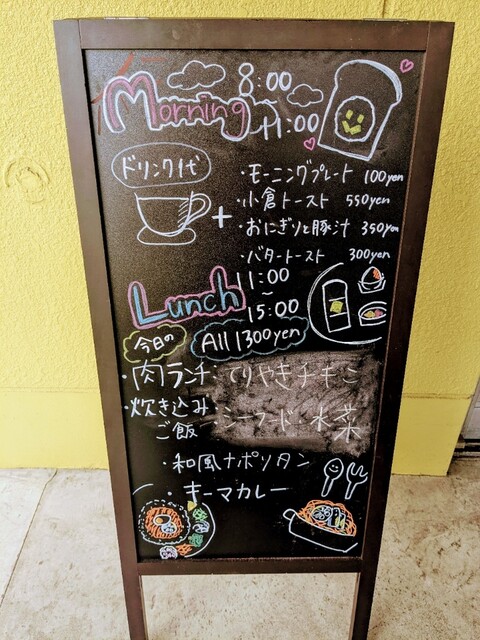 Morning 8:00
~11:00
ドリンク代
+
・モーニングプレート 100yen
・小倉トースト 550yen
・おにぎりと豚汁 350yen
・バタートースト 300yen
Lunch 11:00
~
15:00
今日の All 1300yen
・肉ランチ:てりやきチキン
・炊き込み
ご飯:シーフード・水菜
・和風ナポリタン
・キーマカレー